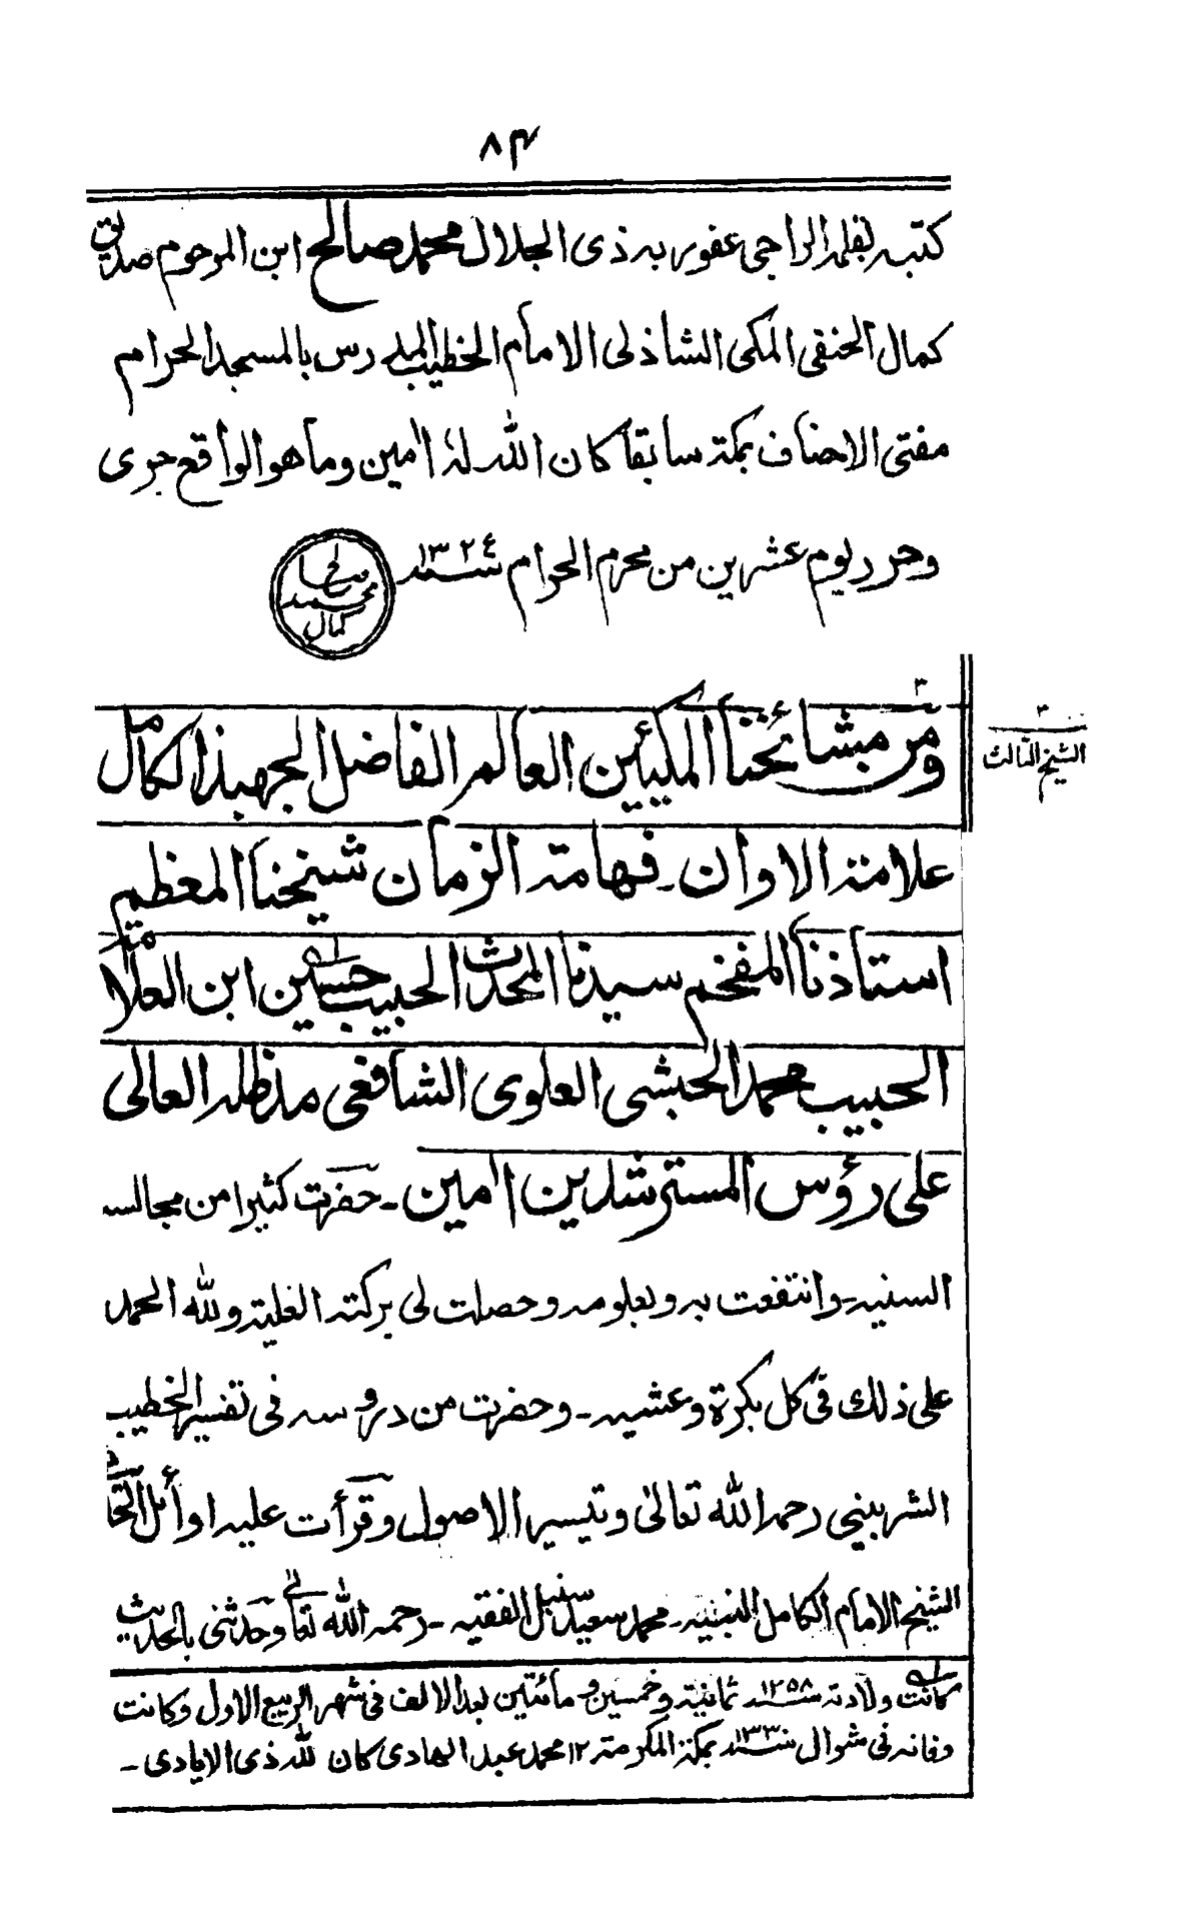 ٨٤
كتبه بقلمه الراجى عفو ربه ذى الجلال محمد صالح ابن المرحوم صديق
كمال الحنفى المكى الشاذلى الامام الخطيب المدرس بالمسجد الحرام
مفتى الاحناف بمكة سابقا كان الله له اٰمين وما هو الواقع جرى
وحرر يوم عشرين من محرم الحرام سنه ١٣٢٤
محمد صالح كمال
٣
ومن مشائخنا المكيين العالم الفاضل الجهبذ الكامل
٣
الشيخ الثالث
علامة الاوان ـ فهامة الزمان شيخنا المعظم
استاذنا المفخم سيدنا المحدث الحبيب حسين ابن العلامة
الحبيب محمد الحبشى العلوى الشافعى مد ظله العالى
على رؤس المسترشدين اٰمين ـ حضرت كثيرا من مجالسه
السنيه ـ وانتفعت به وبعلومه وحصلت لى بركته العلية ولله الحمد
على ذلك فى كل بكرة وعشيه ـ وحضرت من دروسه فى تفسير الخطيب
الشربينى رحمه الله تعالىٰ وتيسير الاصول وقرأت عليه اوائل
الشيخ الامام الكامل النبيه ـ محمد سعيد سنبل الفقيه ـ رحمه الله تعالى وحدثنى بالحديث
كانت ولادته سنه ١٢٥٨ ثمانية وخمسين و مائتين بعد الالف فى شهر الربيع الاول وكانت
وفاته فى شوال سنه ١٣٣٠ بمكة المكرمة ١٢ محمد عبد الهادى كان لله ذى الايادى ـ